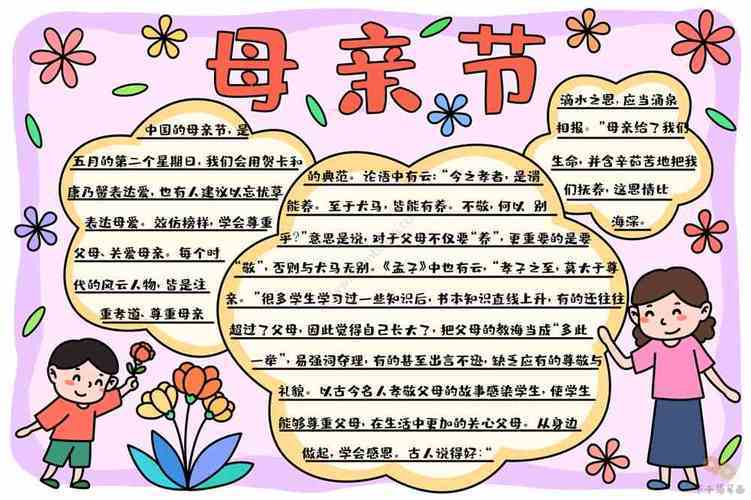 母亲节
中国的母亲节，是
五月的第二个星期日，我们会用贺卡和
康乃馨表达爱，也有人建议以忘忧草
表达母爱。效仿榜样，学会尊重
父母、关爱母亲。每个时
代的风云人物，皆是注
重孝道、尊重母亲
的典范。论语中有云：“今之孝者，是谓
能养。至于犬马，皆能有养。不敬，何以 别
乎？”意思是说，对于父母不仅要“养”，更重要的是要
“敬”，否则与犬马无别。《孟子》中也有云，“孝子之至，莫大于尊
亲。”很多学生学习过一些知识后，书本知识直线上升，有的还往往
超过了父母，因此觉得自己长大了，把父母的教海当成“多此
一举”，易强词夺理，有的甚至出言不逊，缺乏应有的尊敬与
礼貌。以古今名人孝敬父母的故事感染学生，使学生
能够尊重父母，在生活中更加的关心父母。从身边
做起，学会感恩。古人说得好：“
滴水之恩，应当涌泉
相报。”母亲给了我们
生命，并含辛茹苦地把我
们抚养，这恩情比
海深。